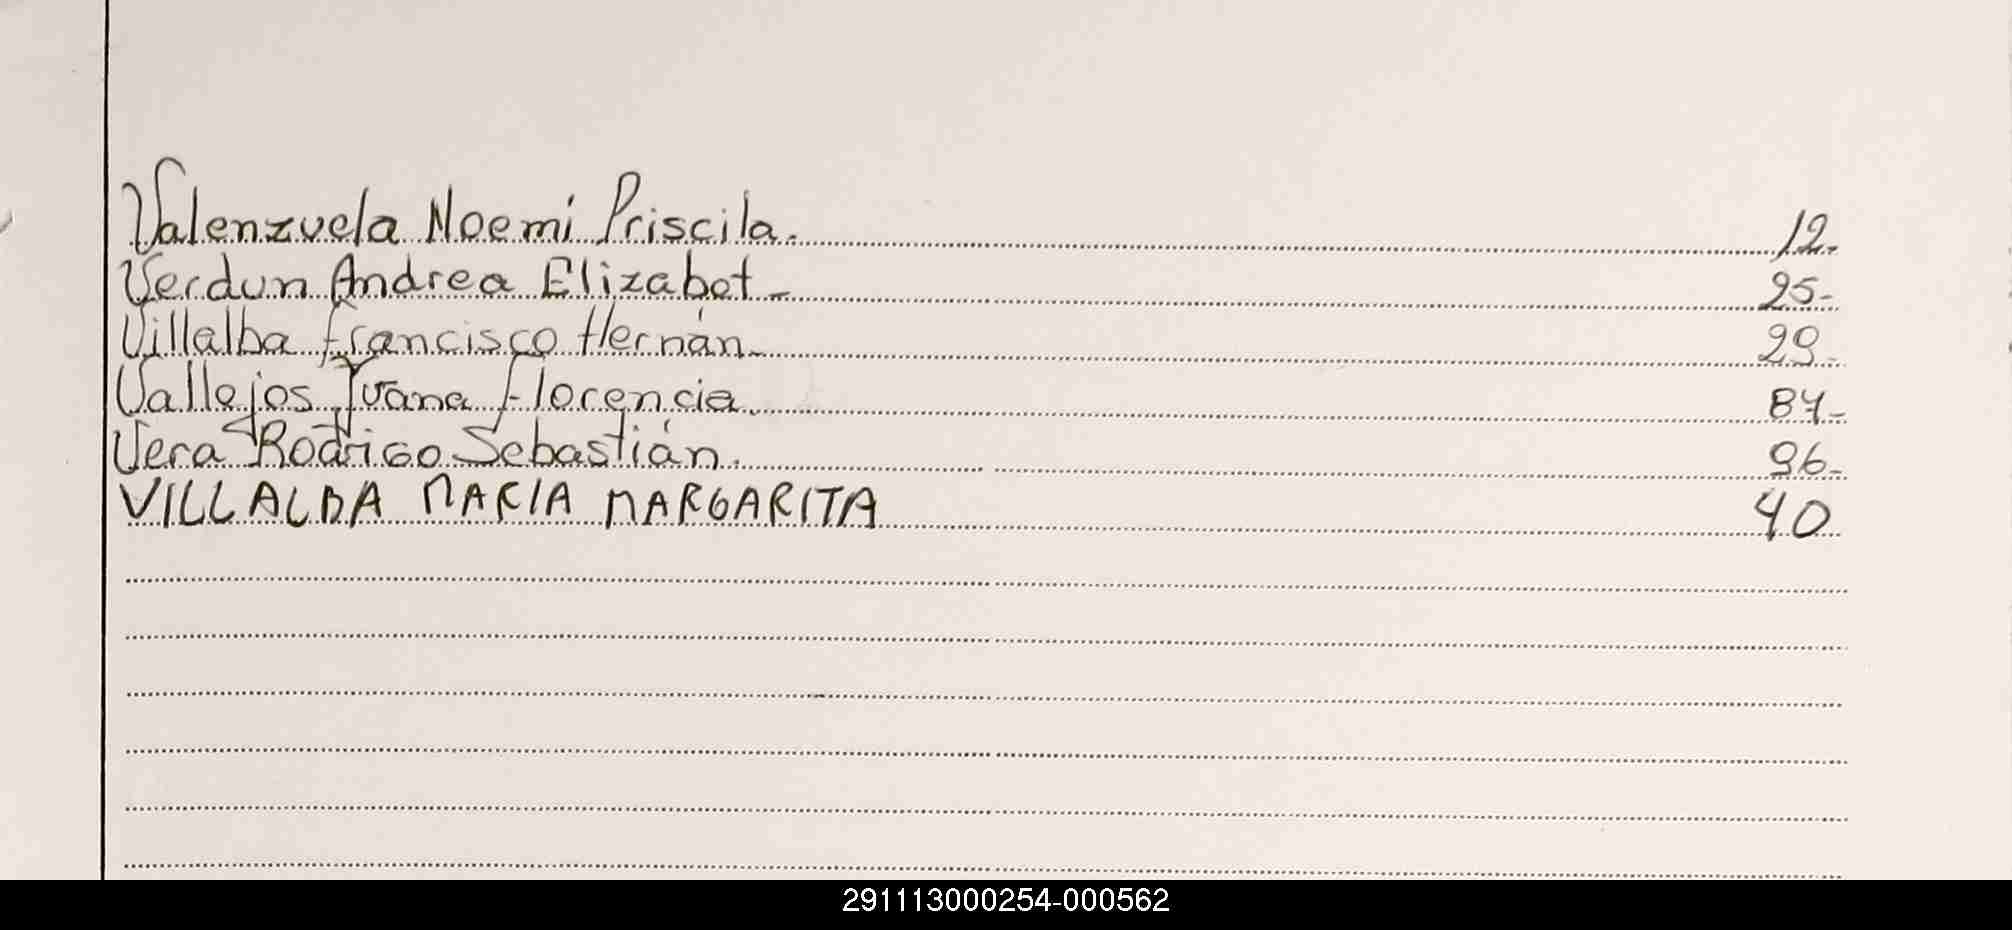 Valenzuela Noemi Priscila. 12.
Verdun Andrea Elizabet - 25-
Villalba Francisco Hernán - 29-
Vallejos Ivana Florencia. 87-
Vera Rodrigo Sebastián. 96-
VILLALBA MARIA MARGARITA 40
291113000254-000562